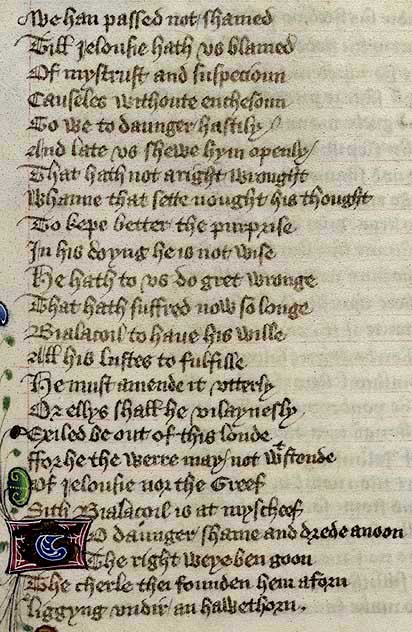 We han passed not shamed
Till Jelousie hath vs blamed
Of mystrust and suspecioun
Causeles withoute enchesoun
Go we to daunger hastily
And late vs shewe hym openly
That hath not aright wrought
Whanne that sette nought his thought
To kepe better the purprise
In his doyng he is not wise
He hath to vs do gret wronge
That hath suffred now so longe
Bialacoil to haue his wille
All his lustes to fulfille
He must amende it vtterly
Or ellys shall he vilaynesly
Exiled be out of this londe
ffor he the werre may not wtstonde
Of Jelousie nor the Greef
Sith Bialacoil is at myscheef
To daunger shame and drede anoon
The right weye ben goon
The cherle thei founden hem aforn
liggyng vndir an hawethorn.